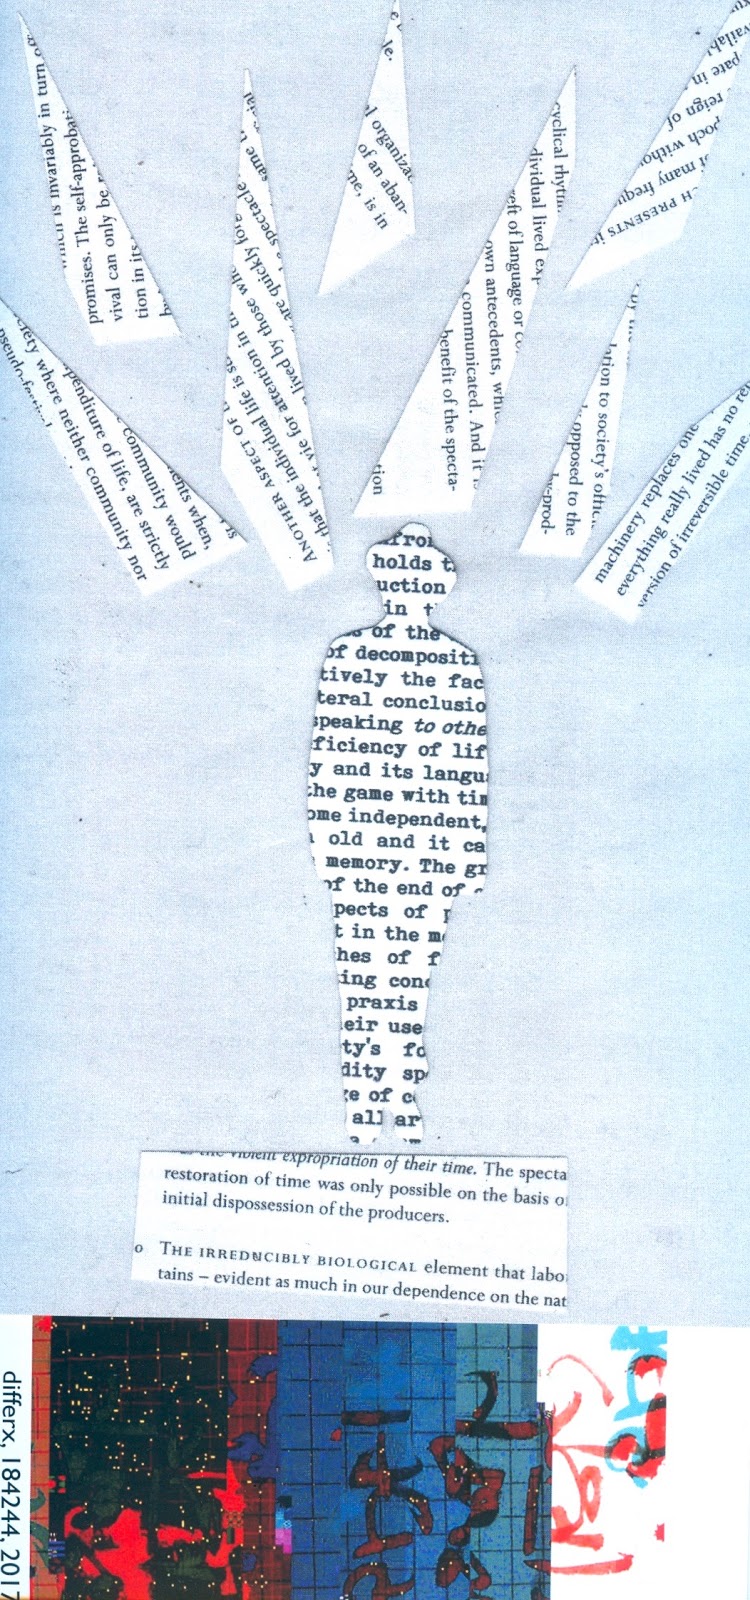 which is invariably in turn
promises. The self-approbat
vival can only be
tion in its
le.
organiza
of an aban-
me, is in
same
spectacle
are quickly
lived by those who
vie for attention in
that the individual life is
ANOTHER ASPECT OF
cyclical rhyth
dividual lived exp
eft of language or co
own antecedents, whic
communicated. And it
benefit of the specta-
tion
pate in
reign of
poch withou
many frequ
H PRESENTS i
ciety where neither community nor
penditure of life, are strictly
community would
ents when,
is
lation to society's offic
opposed to the
by-prod-
machinery replaces one
everything really lived has no re
version of irreversible time
fro
holds t
uction
in t
of the
of decompositi
tively the fac
teral conclusio
speaking to othe
ficiency of lif
y and its langu
the game with tim
ome independent,
old and it ca
memory. The gr
of the end of
pects of
t in the m
hes of f
ing conc
praxis
eir use
ty's fo
dity sp
e of c
all ar
violent expropriation of their time. The specta
restoration of time was only possible on the basis o
initial dispossession of the producers.
o THE IRREDUCIBLY BIOLOGICAL element that labo
tains – evident as much in our dependence on the nat
differx, 184244, 2017